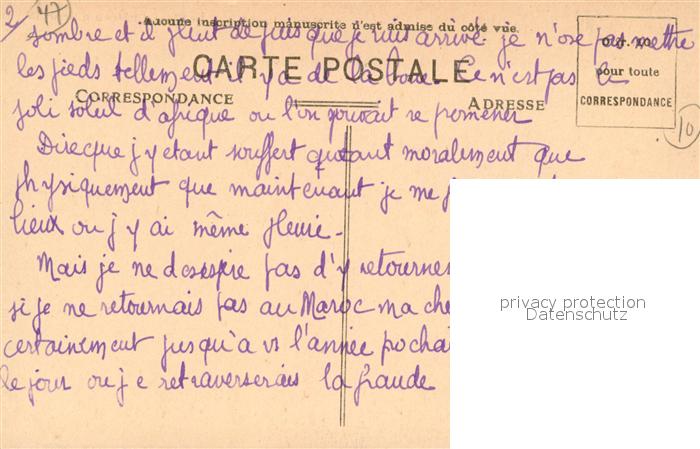 2 47
Aucune inscription manuscrite n'est admise du côté vue.
sombre et il pleut depuis que je suis arrivé. je n'ose pas mettre
CARTE POSTALE
les pieds tellement il y a de la boue. Ce n'est pas le
pour toute
CORRESPONDANCE
CORRESPONDANCE
ADRESSE
joli soleil d'afrique ou l'on pouvait se promener
10
Direque j y etant souffert autant moralement que
physiquement que maintenant je me
lieux ou j y ai même pleuré.
Mais je ne desespère pas d'y retourner
si je ne retournais pas au Maroc ma
certainement jusqu'a
l'année
le jour ou je retraverserais la
privacy protection
Datenschutz